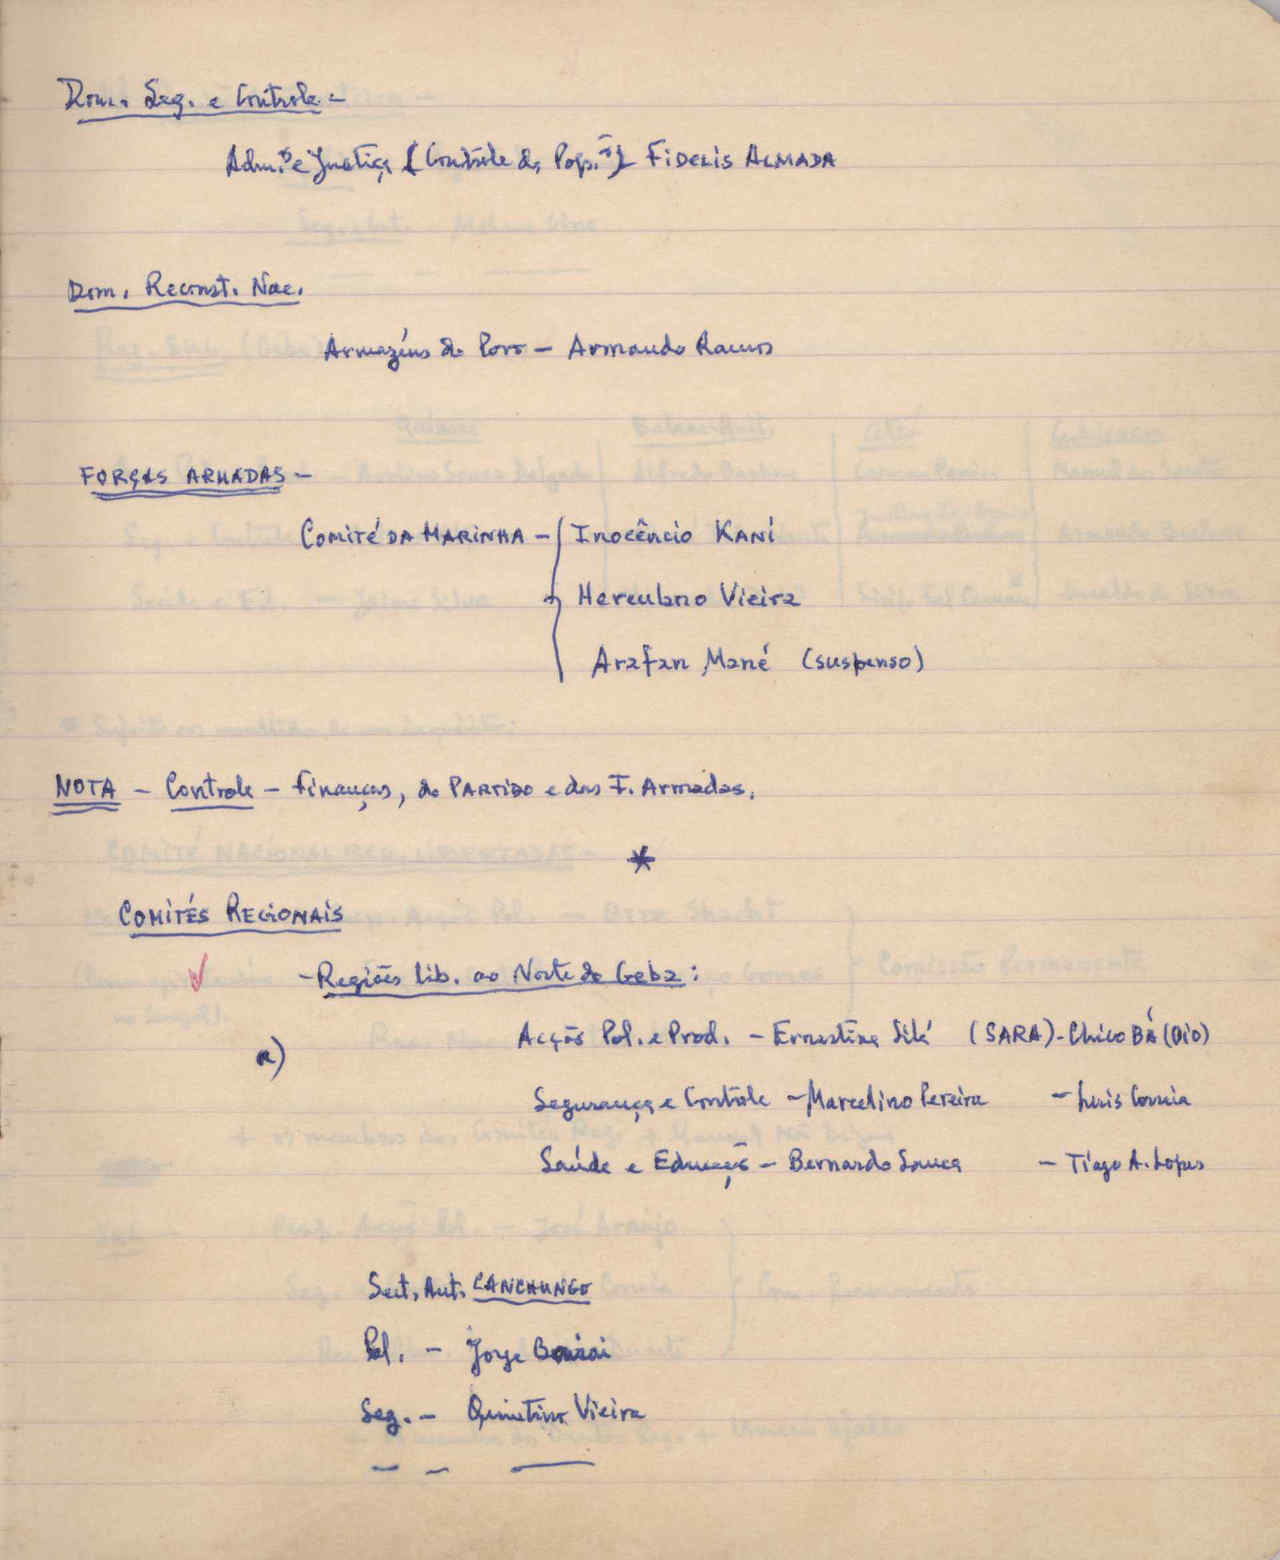 Dom. Seg. e Contrôle -
Adm.ão e Justiça (Contrôle da Pop.ão) FIDELIS ALMADA
Dom. Reconst. Nac.
Armazéns do Povo - Armando Ramos
FORÇAS ARMADAS -
COMITÉ DA MARINHA - { Inocêncio KANÍ
Herculano Vieira
Arafan Mané (suspenso)
NOTA - Controle - finanças, do PARTIDO e das F. Armadas.
*
COMITÉS REGIONAIS
✓ - Regiões lib. ao Norte do Geba:
a) Acção Pol. e Prod. - Ernestina Silá (SARA) - Chico BÁ (OIO)
Segurança e Contrôle - Marcelino Pereira - Luis Correia
Saúde e Educação - Bernardo Sousa - Tiago A. Lopes
Sect. Aut. CANCHUNGO
Pol. - Jorge
Seg. - Quintino Vieira